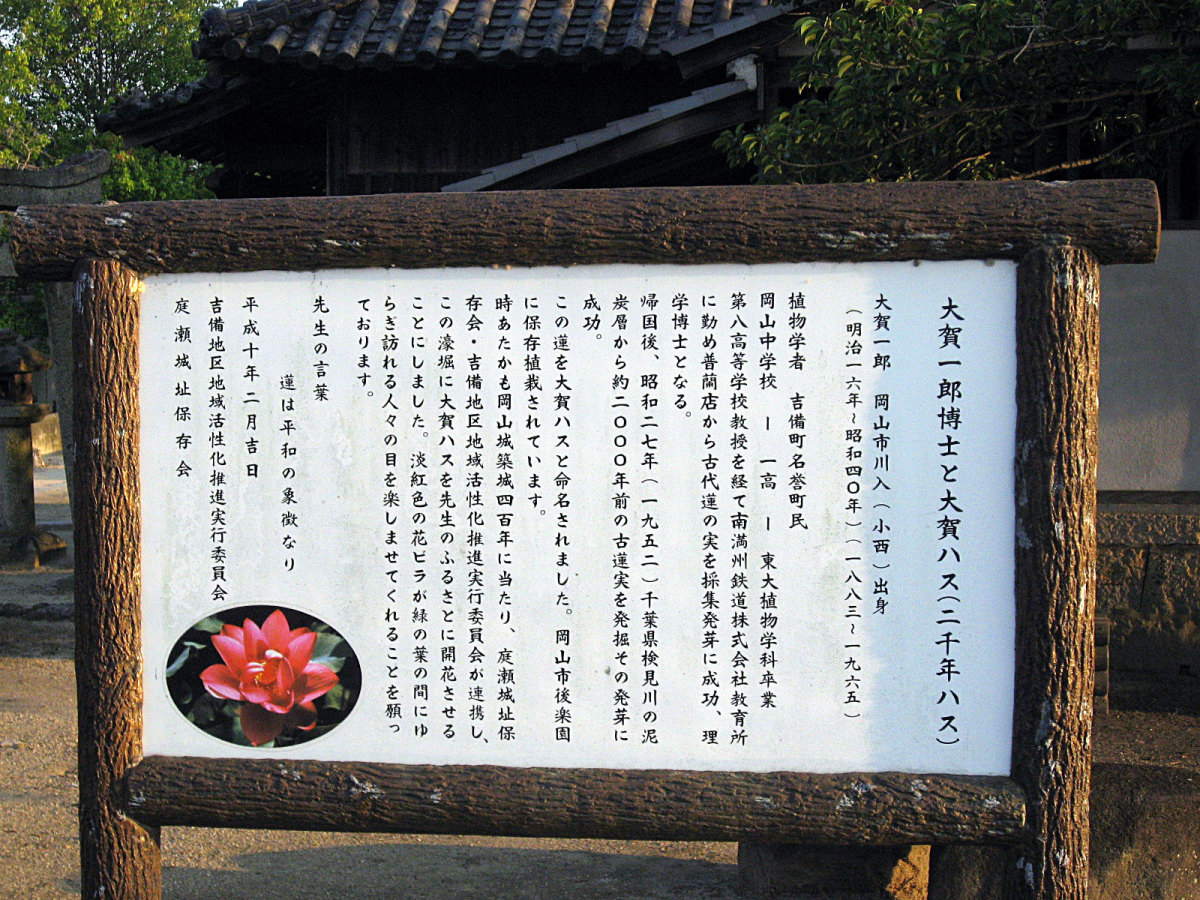 大賀一郎博士と大賀ハス(二千年ハス)
大賀一郎 岡山市川入(小西)出身
(明治一六年~昭和四〇年)(一八八三~一九六五)
植物学者 吉備町名誉町民
岡山中学校 ー 一高 ー 東大植物学科卒業
第八高等学校教授を経て南満州鉄道株式会社教育所
に勤め普蘭店から古代蓮の実を採集発芽に成功、理
学博士となる。
帰国後、昭和二七年(一九五二)千葉県検見川の泥
炭層から約二〇〇〇年前の古蓮実を発掘その発芽に
成功。
この蓮を大賀ハスと命名されました。岡山市後楽園
に保存植栽されています。
時あたかも岡山城築城四百年に当たり、庭瀬城址保
存会・吉備地区地域活性化推進実行委員会が連携し、
この濠堀に大賀ハスを先生のふるさとに開花させる
ことにしました。淡紅色の花ビラが緑の葉の間にゆ
らぎ訪れる人々の目を楽しませてくれることを願っ
ております。
先生の言葉
蓮は平和の象徴なり
平成十年二月吉日
吉備地区地域活性化推進実行委員会
庭瀬城址保存会